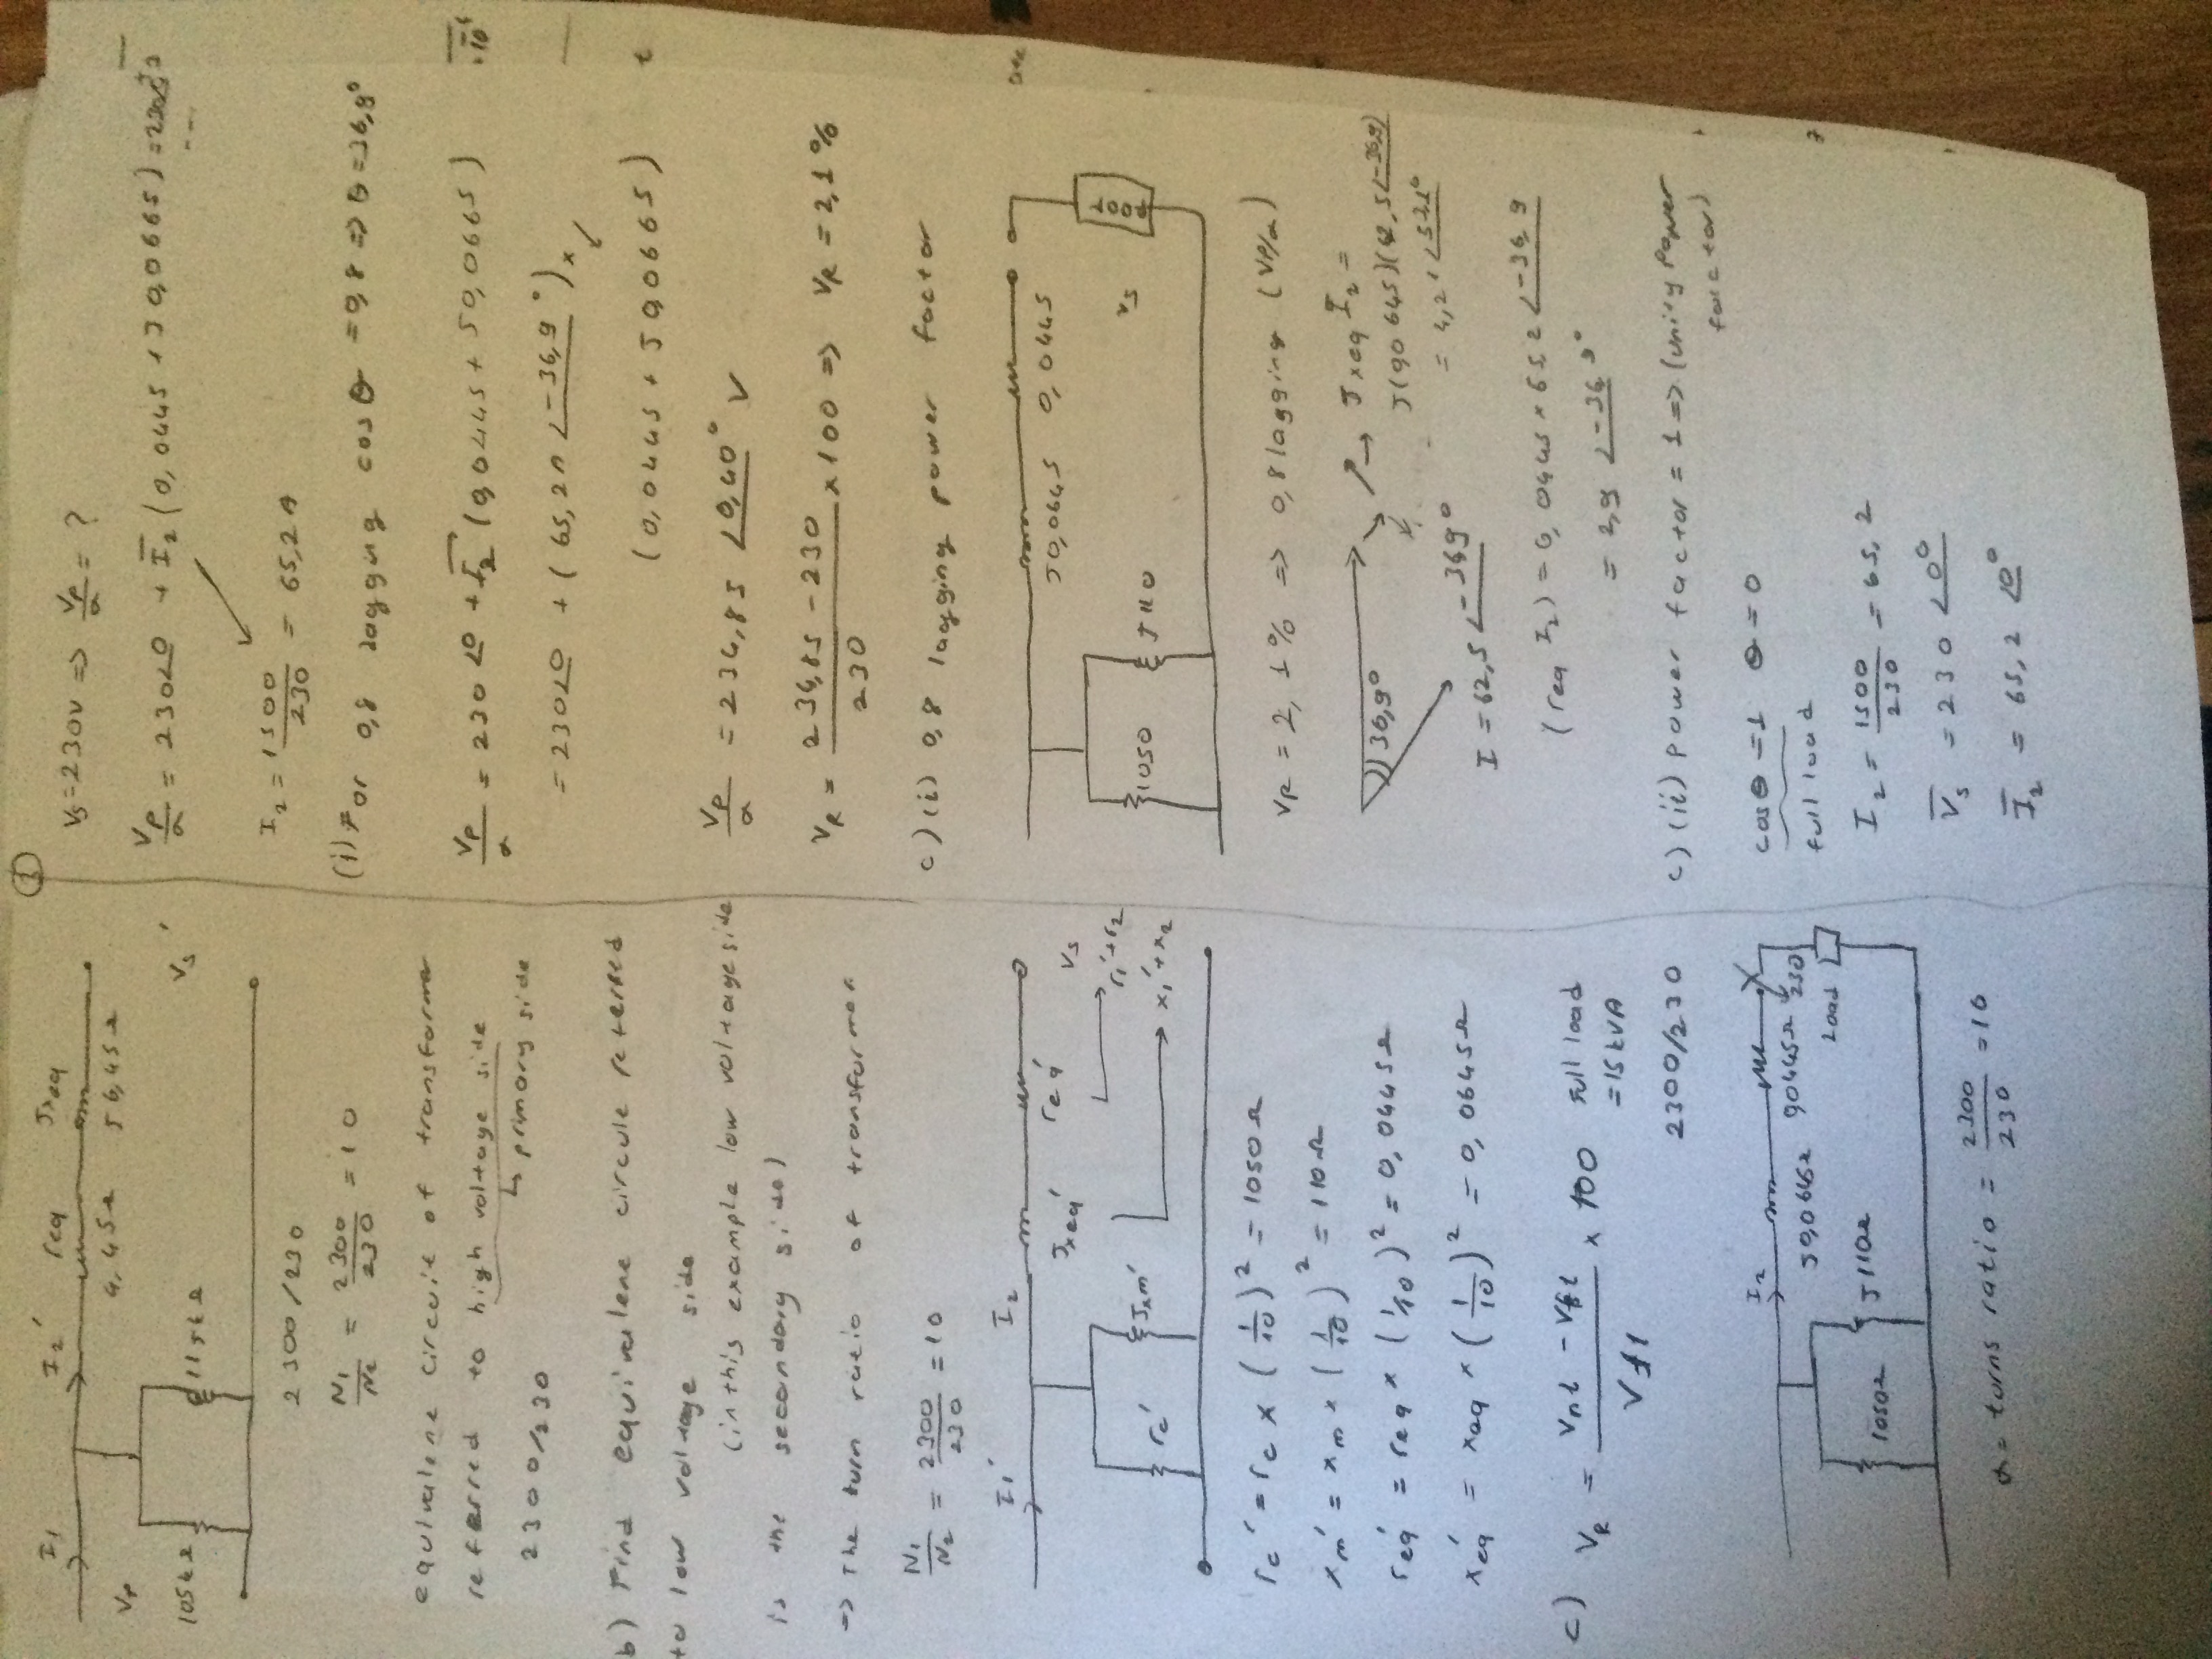 I1 I2' req Jxeq
4,45Ω J6,45Ω
Vp 105kΩ J11kΩ Vs'
2300/230
N1/N2 = 2300/230 = 10
equivalent circuit of transformer
referred to high voltage side
↳ primary side
2300/230
b) Find equivalent circuit referred
to low voltage side
(in this example low voltage side
is the secondary side)
-> The turn ratio of transformer
N1/N2 = 2300/230 = 10
I1' I2 Jxeq' req'
rc' Jxm' r1'+r2 Vs
x1'+x2
rc' = rc x (1/10)² = 1050Ω
xm' = xm x (1/10)² = 110Ω
req' = req x (1/10)² = 0,0445Ω
xeq' = xeq x (1/10)² = 0,0645Ω
c) VR = Vnl - Vfl / Vfl x 100 full load
= 15kVA
2300/230
I2 J0,0645Ω 0,0445Ω 230
1050Ω J110Ω Load
a = turns ratio = 2300/230 = 10
①
Vs = 230V => Vp/a = ?
Vp/a = 230∠0 + I2 (0,0445 + J0,0665) =
I2 = 1500/230 = 65,2A
(i) For 0,8 lagging cosθ = 0,8 => θ = 36,8°
Vp/a = 230∠0 + I2 (0,0445 + J0,0665)
= 230∠0 + (65,2A∠-36,9°) x
(0,0445 + J0,0665)
Vp/a = 234,85∠0,40° V
VR = 234,85 - 230 / 230 x 100 => VR = 2,1%
c) (i) 0,8 lagging power factor
J0,0645 0,0445
1050 J110 Vs Load
VR = 2,1% => 0,8 lagging (VP/a)
36,9° Jxeq I2 =
J(0,0645)(62,5∠-36,9)
= 4,21∠53,1°
I = 62,5∠-36,9°
(req I2) = 0,0445 x 65,2∠-36,9
= 2,9∠-36,9°
c) (ii) power factor = 1 => (unity Power
factor)
cosθ = 1 θ = 0
full load
I2 = 1500/230 = 65,2
Vs = 230∠0°
I2 = 65,2∠0°